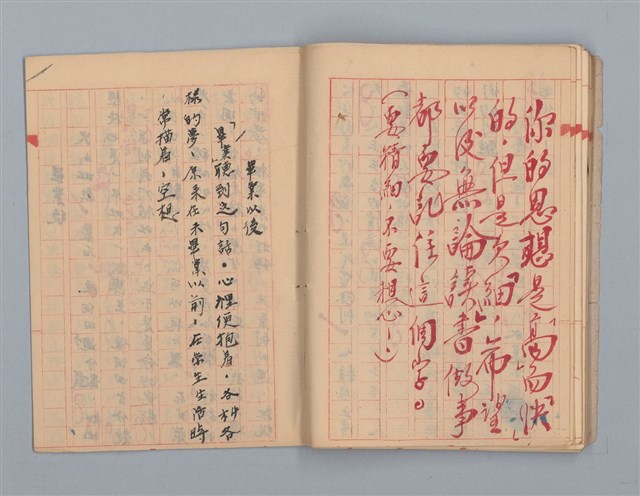 你的思想是「高而快」
的,但是欠「細」,希望
以後無論讀書做事
都要記住這個字。
(要精細,不要粗心!)
畢業以後
「畢業」聽到這句話。心裡便抱着,各衫各
樣的夢,原來在未畢業以前,在學生生活時
,常描着,空想